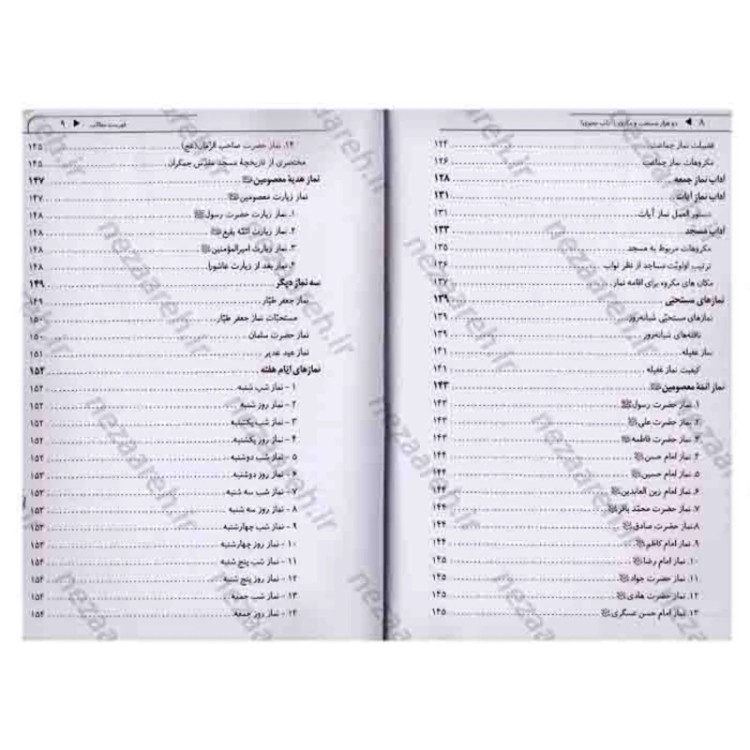 ۸ ◀ دو هزار مستحب و مکروه
فضیلت نماز جماعت ۱۲۴
مکروهات نماز جماعت ۱۲۶
آداب نماز جمعه ۱۲۸
آداب نماز آیات ۱۳۱
دستور العمل نماز آیات ۱۳۱
آداب مسجد ۱۳۳
مکروهات مربوط به مسجد ۱۳۵
ترتیب اولویّت مساجد از نظر ثواب ۱۳۶
مکان های مکروه برای اقامه نماز ۱۳۷
نمازهای مستحبّی ۱۳۹
نمازهای مستحبّی شبانه‌روز ۱۳۹
نافله‌های شبانه‌روز ۱۳۹
نماز غفیله ۱۴۱
کیفیت نماز غفیله ۱۴۱
نماز ائمّهٔ معصومین ۱۴۳
۱. نماز حضرت رسول ۱۴۳
۲. نماز حضرت علی ۱۴۳
۳. نماز حضرت فاطمه ۱۴۳
۴. نماز امام حسن ۱۴۴
۵. نماز امام حسین ۱۴۴
۶. نماز امام زین العابدین ۱۴۴
۷. نماز حضرت محمّد باقر ۱۴۴
۸. نماز حضرت صادق ۱۴۴
۹. نماز امام کاظم ۱۴۴
۱۰. نماز امام رضا ۱۴۵
۱۱. نماز حضرت جواد ۱۴۵
۱۲. نماز حضرت هادی ۱۴۵
۱۳. نماز امام حسن عسگری ۱۴۵
فهرست مطالب ▶ ۹
۱۴. نماز حضرت صاحب الزّمان(عج) ۱۴۵
مختصری از تاریخچهٔ مسجد مقدّس جمکران ۱۴۵
نماز هدیهٔ معصومین ۱۴۷
نماز زیارت معصومین ۱۴۷
۱. نماز زیارت حضرت رسول ۱۴۸
۲. نماز زیارت ائمّه بقیع ۱۴۸
۳. نماز زیارت امیرالمؤمنین ۱۴۸
۴. نماز بعد از زیارت عاشورا ۱۴۸
سه نماز دیگر ۱۴۹
نماز جعفر طیّار ۱۴۹
مستحبّات نماز جعفر طیّار ۱۵۰
نماز حضرت سلمان ۱۵۰
نماز عید غدیر ۱۵۱
نمازهای ایّام هفته ۱۵۲
۱ - نماز شب شنبه ۱۵۲
۲ - نماز روز شنبه ۱۵۲
۳ - نماز شب یکشنبه ۱۵۲
۴ - نماز روز یکشنبه ۱۵۲
۵ - نماز شب دوشنبه ۱۵۲
۶ - نماز روز دوشنبه ۱۵۳
۷ - نماز شب سه شنبه ۱۵۳
۸ - نماز روز سه شنبه ۱۵۳
۹ - نماز شب چهارشنبه ۱۵۳
۱۰ - نماز روز چهارشنبه ۱۵۳
۱۱ - نماز شب پنج شنبه ۱۵۴
۱۲ - نماز روز پنج شنبه ۱۵۴
۱۳ - نماز شب جمعه ۱۵۴
۱۴ - نماز روز جمعه ۱۵۴
nezaareh.ir